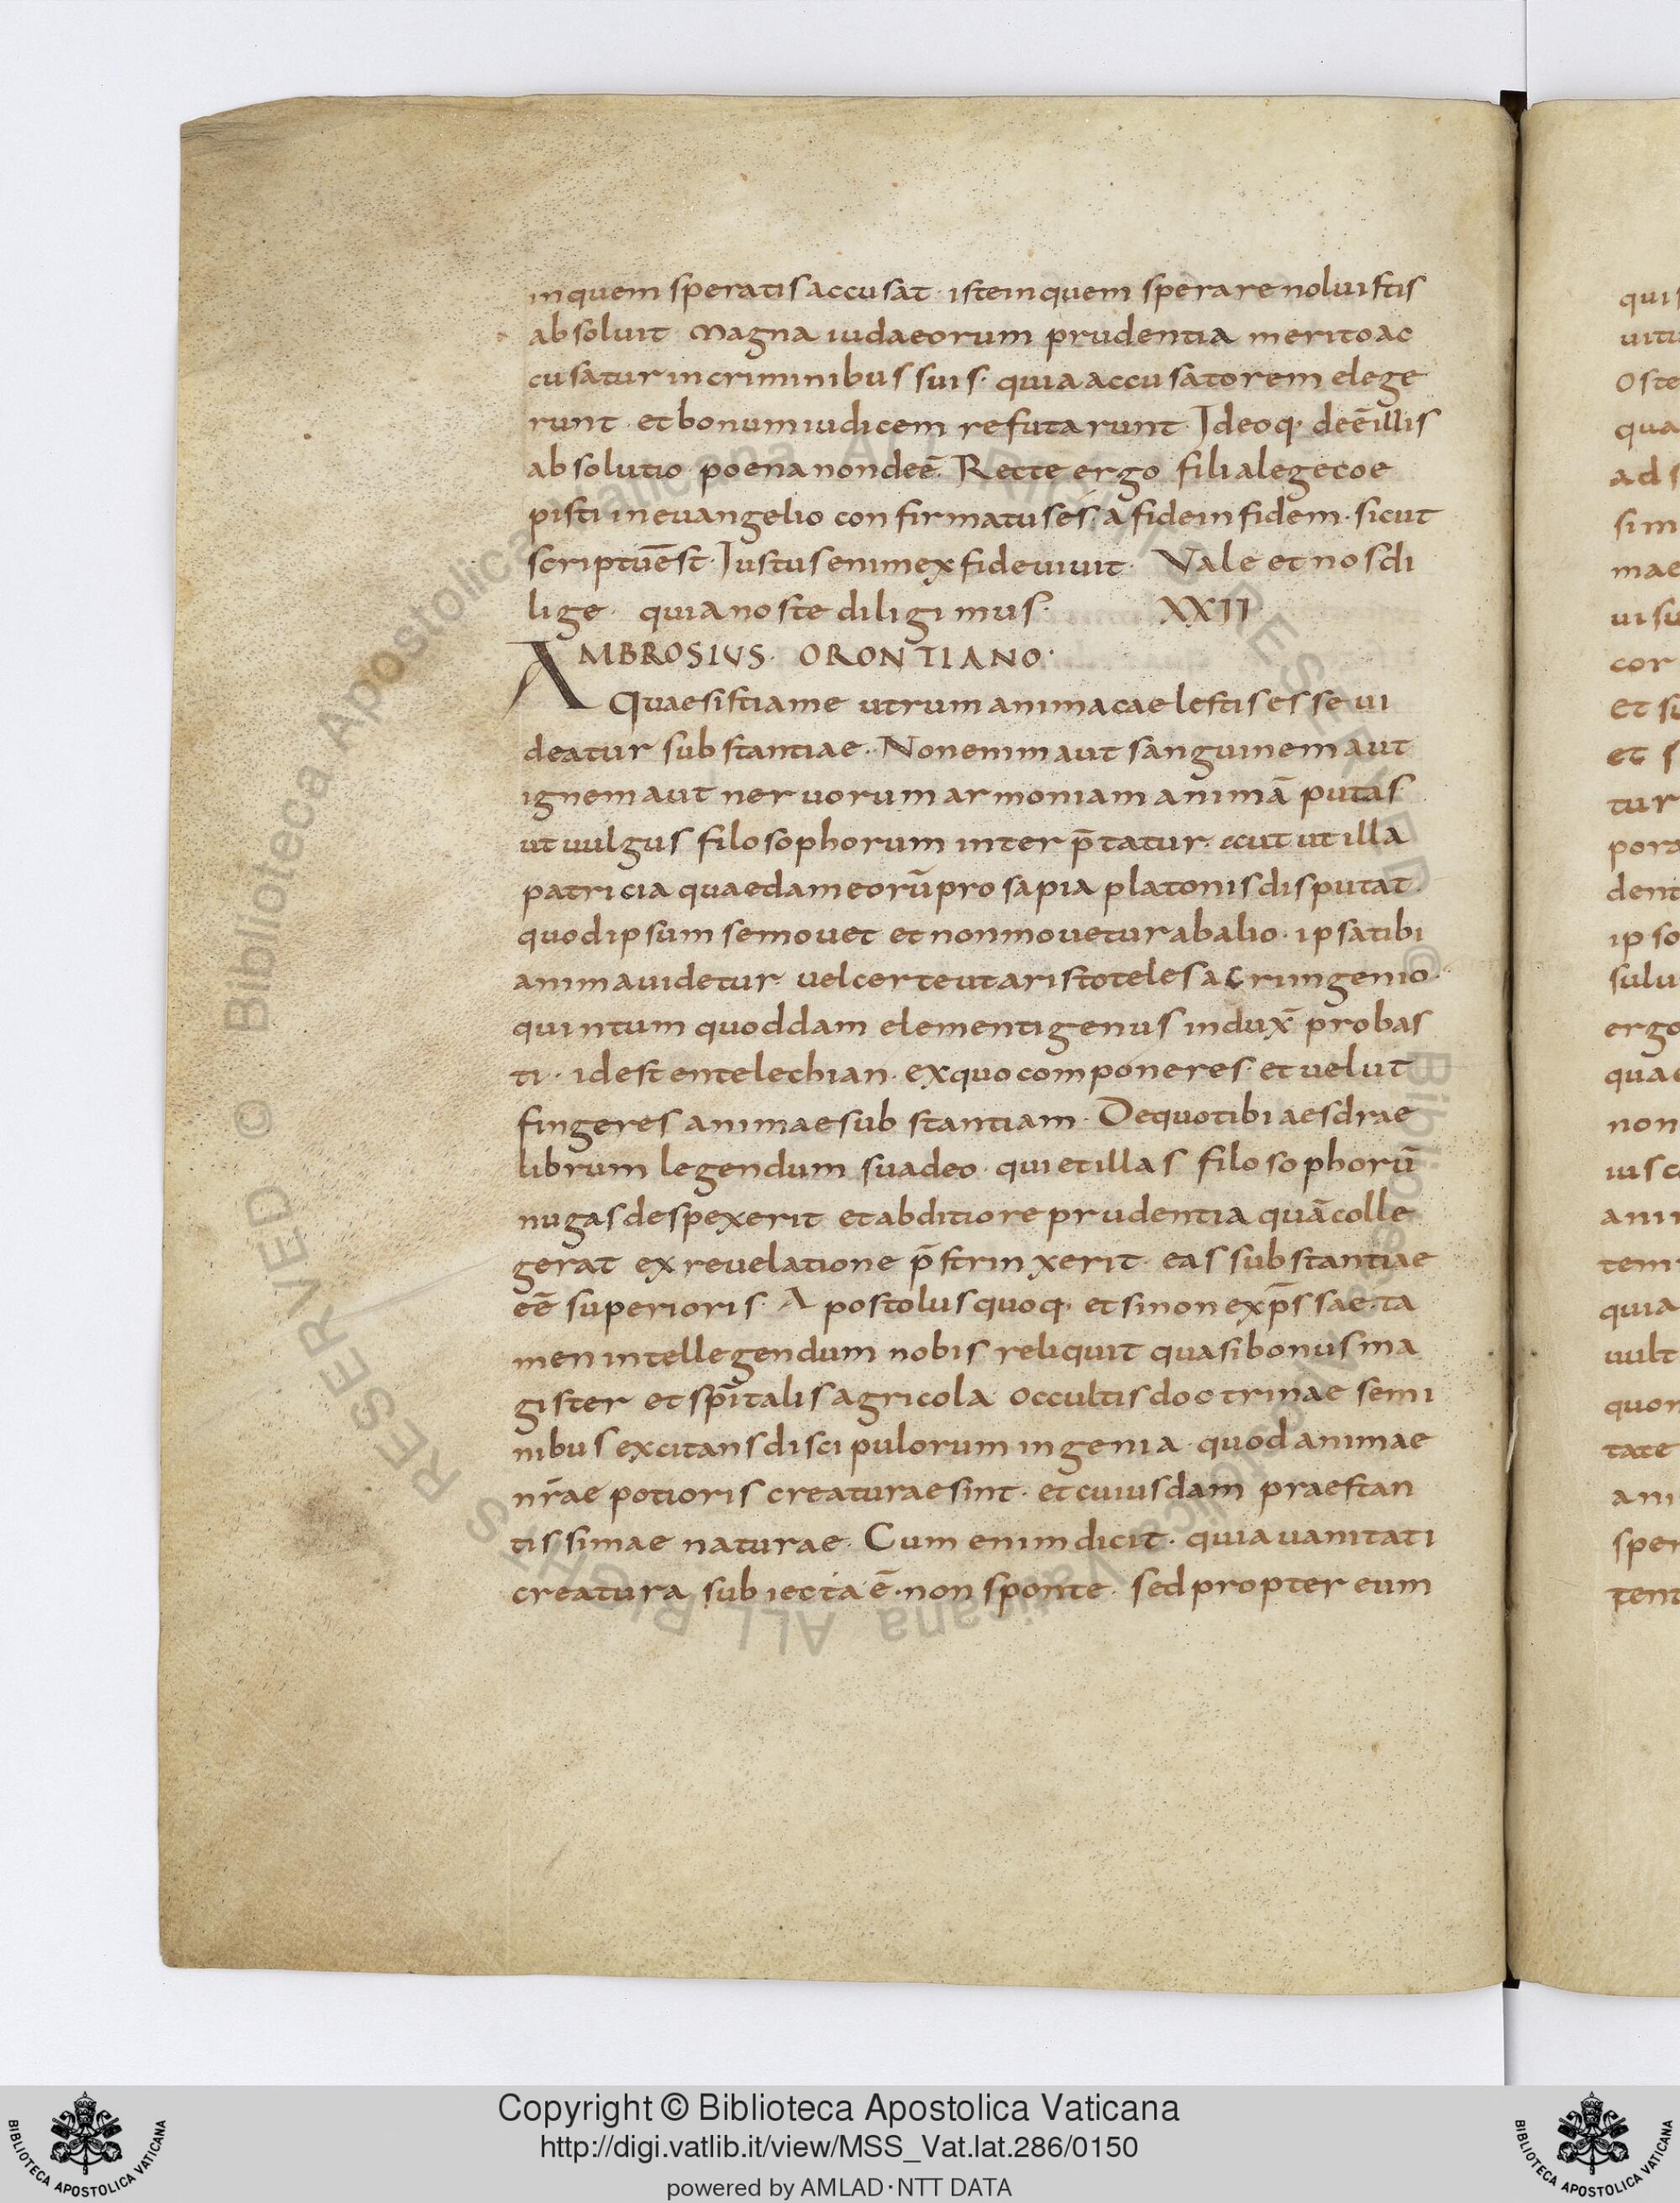 in quem speratis accusat · iste in quem sperare noluistis
absoluit Magna iudaeorum prudentia merito ac
cusatur in criminibus suis · quia accusatorem elege
runt · et bonum iudicem refutarunt · Ideoq· deē illis
absolutio poena non deē · Recte ergo fili a lege coe
pisti in euangelio confirmatus és · a fide in fidem · sicut
scriptū est · Iustus enim ex fide uiuit · Vale et nos di
lige · quia nos te diligimus · XXII
AMBROSIUS · ORONTIANO ·
Quaesisti a me utrum anima caelestis esse ui
deatur substantiae · Non enim aut sanguinem aut
ignem aut neruorum armoniam animā putas
ut uulgus filosophorum interp̄tatur · aut ut illa
patricia quaedam eorū prosapia platonis disputat ·
quod ipsum se mouet et non mouetur ab alio · ipsa tibi
anima uidetur · uel certe ut aristoteles acri ingenio ·
quintum quoddam elementi genus indux̄ probas
ti · id est entelechian · ex quo componeres · et uelut
fingeres animae substantiam · De quo tibi aesdrae
librum legendum suadeo · qui et illas filosophorū
nugas despexerit et abditiore prudentia quā colle
gerat ex reuelatione p̄strinxerit · eas substantiae
eē superioris · Apostolus quoq· et si non exp̄ssae · ta
men intellegendum nobis reliquit quasi bonus ma
gister et sp̄italis agricola occultis doctrinae semi
nibus excitans discipulorum ingenia · quod animae
nr̄ae potioris creaturae sint · et cuiusdam praestan
tissimae naturae · Cum enim dicit · quia uanitati
creatura subiecta ē · non sponte · sed propter eum
quis
uitu
oste
qua
ad s
sim
mae
uisu
cor
et su
et s
tur
pora
dent
ipso
sulu
ergo
quae
non
ius c
ani
tem
quia
uult
quor
tate
ani
sper
tent
© Biblioteca Apostolica Vaticana ALL RIGHTS RESERVED © Biblioteca Apostolica Vaticana ALL RIGHTS RESERVED
Copyright © Biblioteca Apostolica Vaticana
http://digi.vatlib.it/view/MSS_Vat.lat.286/0150
powered by AMLAD·NTT DATA
BIBLIOTECA APOSTOLICA VATICANA
BIBLIOTECA APOSTOLICA VATICANA